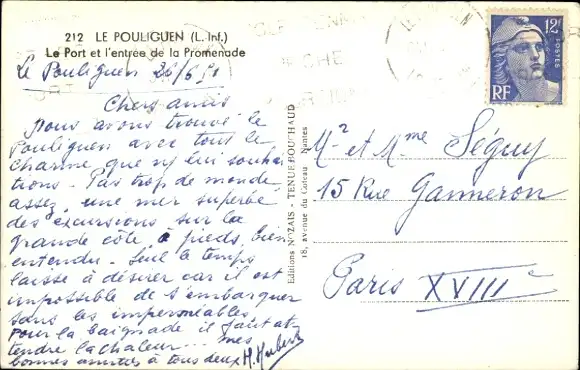 212 LE POULIGUEN (L. Inf.)
Le Port et l'entrée de la Promenade
Le Pouliguen 26/6/51
Chers amis
nous avons trouvé le
Pouliguen avec tous le
charme que ns lui souhai
tions. Pas trop de monde,
assez, une mer superbe
des excursions sur la
grande côte à pieds bien
entendu. Seul le temps
laisse à désirer car il est
impossible de s'embarquer
sans les imperméables
Pour la baignade il faut at
tendre la chaleur... mes
bonnes amitiés à tous deux H. Hubert
Editions NOZAIS - TENUE BOUCHAUD
18, avenue du Coteau Nantes
12F
POSTES
RF
Mr et Mme Séguy
15 Rue Ganneron
Paris XVIIIe